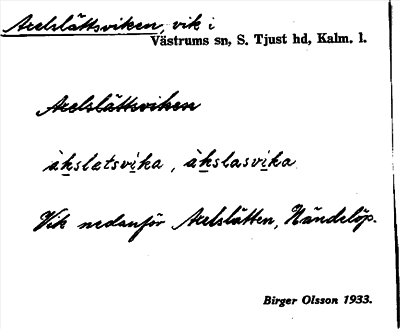 Axelslättsviken, vik i
Västrums sn, S. Tjust hd, Kalm. l.
Axelslättsviken
àkslætsvika, àkslasvika
Vik nedanför Axelslätten, Händelöp.
Birger Olsson 1933.